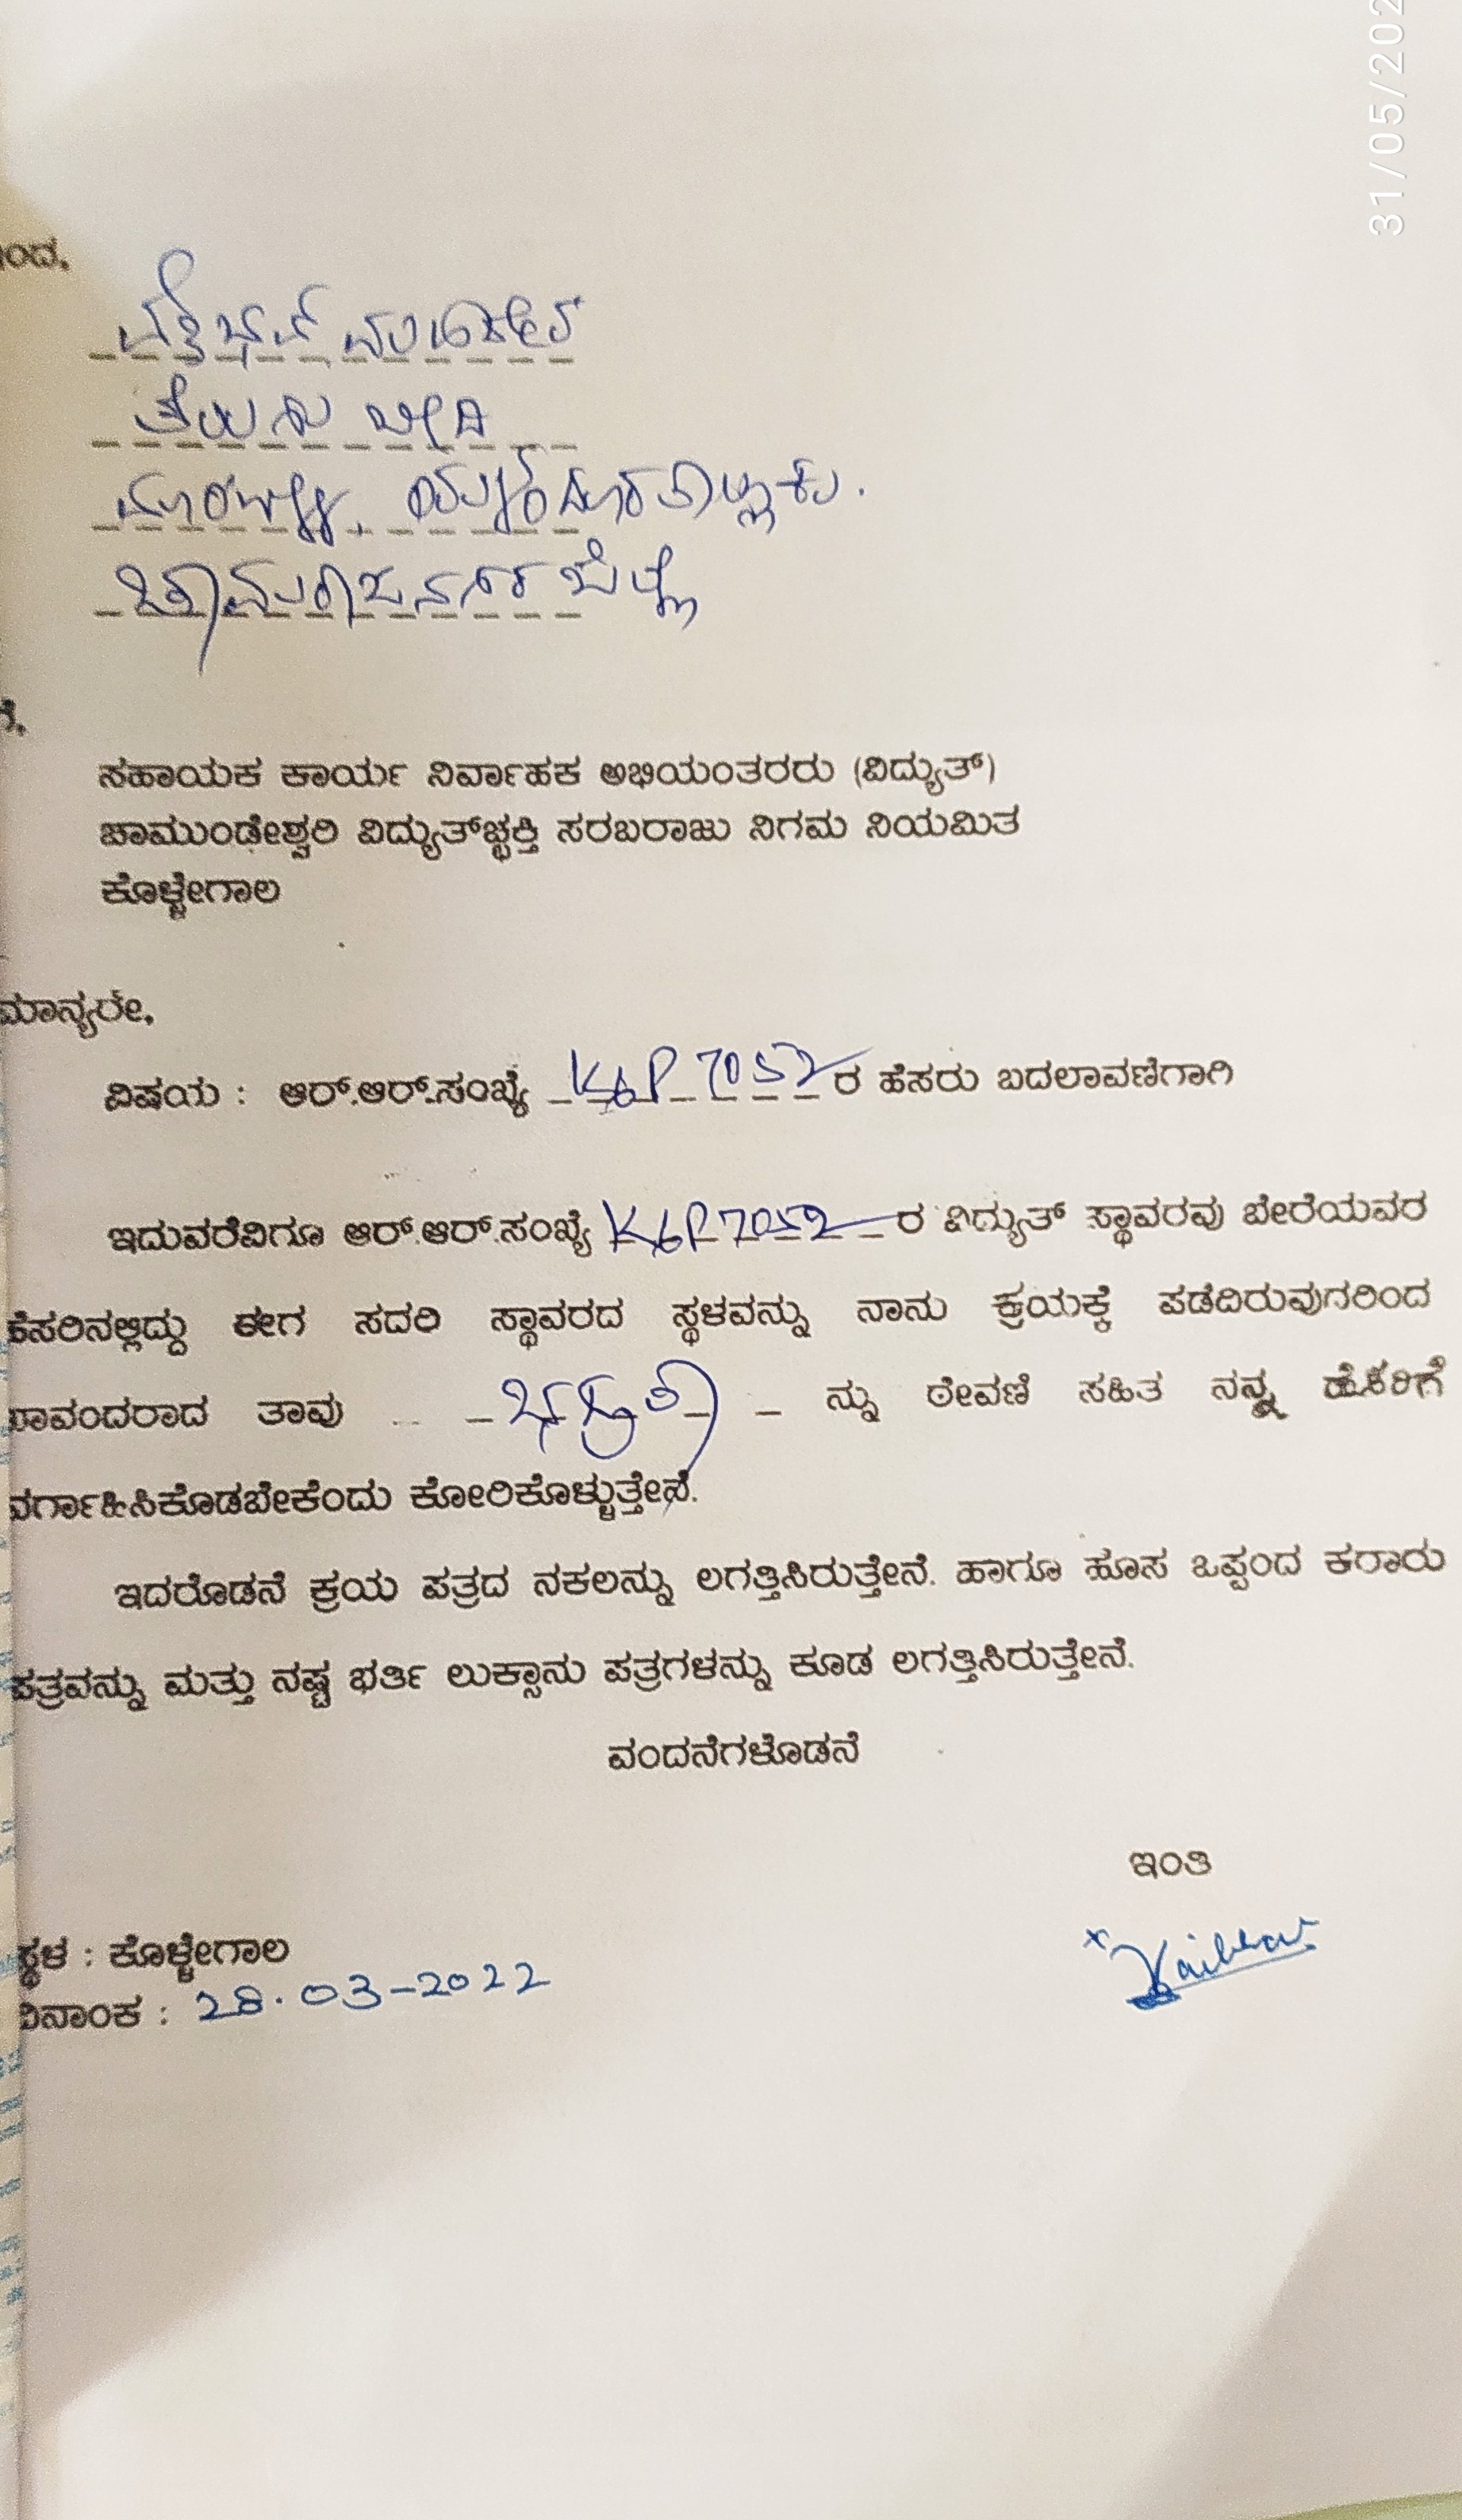 31/05/202
ಇಂದ,
ವೈಭವ್
ಬೀದಿ
ಚಾಮರಾಜನಗರ ಜಿಲ್ಲೆ
ಗೆ,
ಸಹಾಯಕ ಕಾರ್ಯ ನಿರ್ವಾಹಕ ಅಭಿಯಂತರರು (ವಿದ್ಯುತ್)
ಚಾಮುಂಡೇಶ್ವರಿ ವಿದ್ಯುತ್‌ಚ್ಛಕ್ತಿ ಸರಬರಾಜು ನಿಗಮ ನಿಯಮಿತ
ಕೊಳ್ಳೇಗಾಲ
ಮಾನ್ಯರೇ,
ವಿಷಯ : ಆರ್.ಆರ್.ಸಂಖ್ಯೆ KGP 7052 ರ ಹೆಸರು ಬದಲಾವಣೆಗಾಗಿ
ಇದುವರೆವಿಗೂ ಆರ್.ಆರ್.ಸಂಖ್ಯೆ KGP 7052 ರ ವಿದ್ಯುತ್ ಸ್ಥಾವರವು ಬೇರೆಯವರ
ಹೆಸರಿನಲ್ಲಿದ್ದು ಈಗ ಸದರಿ ಸ್ಥಾವರದ ಸ್ಥಳವನ್ನು ನಾನು ಕ್ರಯಕ್ಕೆ ಪಡೆದಿರುವುದರಿಂದ
ತಾವು ನ್ನು ಠೇವಣಿ ಸಹಿತ ನನ್ನ ಹೆಸರಿಗೆ
ವರ್ಗಾಹಿಸಿಕೊಡಬೇಕೆಂದು ಕೋರಿಕೊಳ್ಳುತ್ತೇನೆ.
ಇದರೊಡನೆ ಕ್ರಯ ಪತ್ರದ ನಕಲನ್ನು ಲಗತ್ತಿಸಿರುತ್ತೇನೆ. ಹಾಗೂ ಹೊಸ ಒಪ್ಪಂದ ಕರಾರು
ಪತ್ರವನ್ನು ಮತ್ತು ನಷ್ಟ ಭರ್ತಿ ಲುಕ್ಸಾನು ಪತ್ರಗಳನ್ನು ಕೂಡ ಲಗತ್ತಿಸಿರುತ್ತೇನೆ.
ವಂದನೆಗಳೊಡನೆ
ಇಂತಿ
ಸ್ಥಳ : ಕೊಳ್ಳೇಗಾಲ
ದಿನಾಂಕ : 28.03-2022
Vaibhav